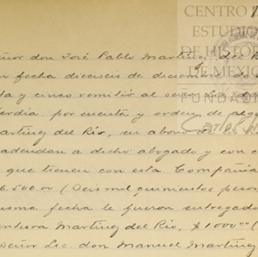 CENTRO
ESTUDIOS
DE HISTORIA
DE MEXICO
FUNDACIÓN
eñor don José Pablo Martínez del
n fecha dieciseis de
ta y cinco remitir al señor
por cuenta y orden de
artínez del Río, en abono
adeudan a dicho abogado y con c
que tienen con esta Compañía
6.500.00 (Seis mil quinientos pesos
isma fecha le fueron entregados
entura Martínez del Río, $1000.00 (
Señor Lic. don Manuel Martínez